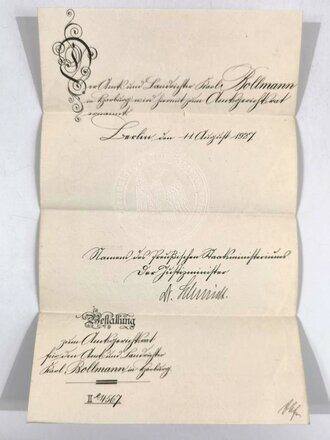 Der Amts und Landrichter Karl Bollmann
in Harburg wird hiermit zum Amtsgerichtsrat
ernannt
Berlin, den 11 August 1927
Namens des Preußischen Staatsministeriums
Der Justizminister
Dr. Schmidt
Bestallung
zum Amtsgerichtsrat
für den Amts und Landrichter
Karl Bollmann in Harburg
4567